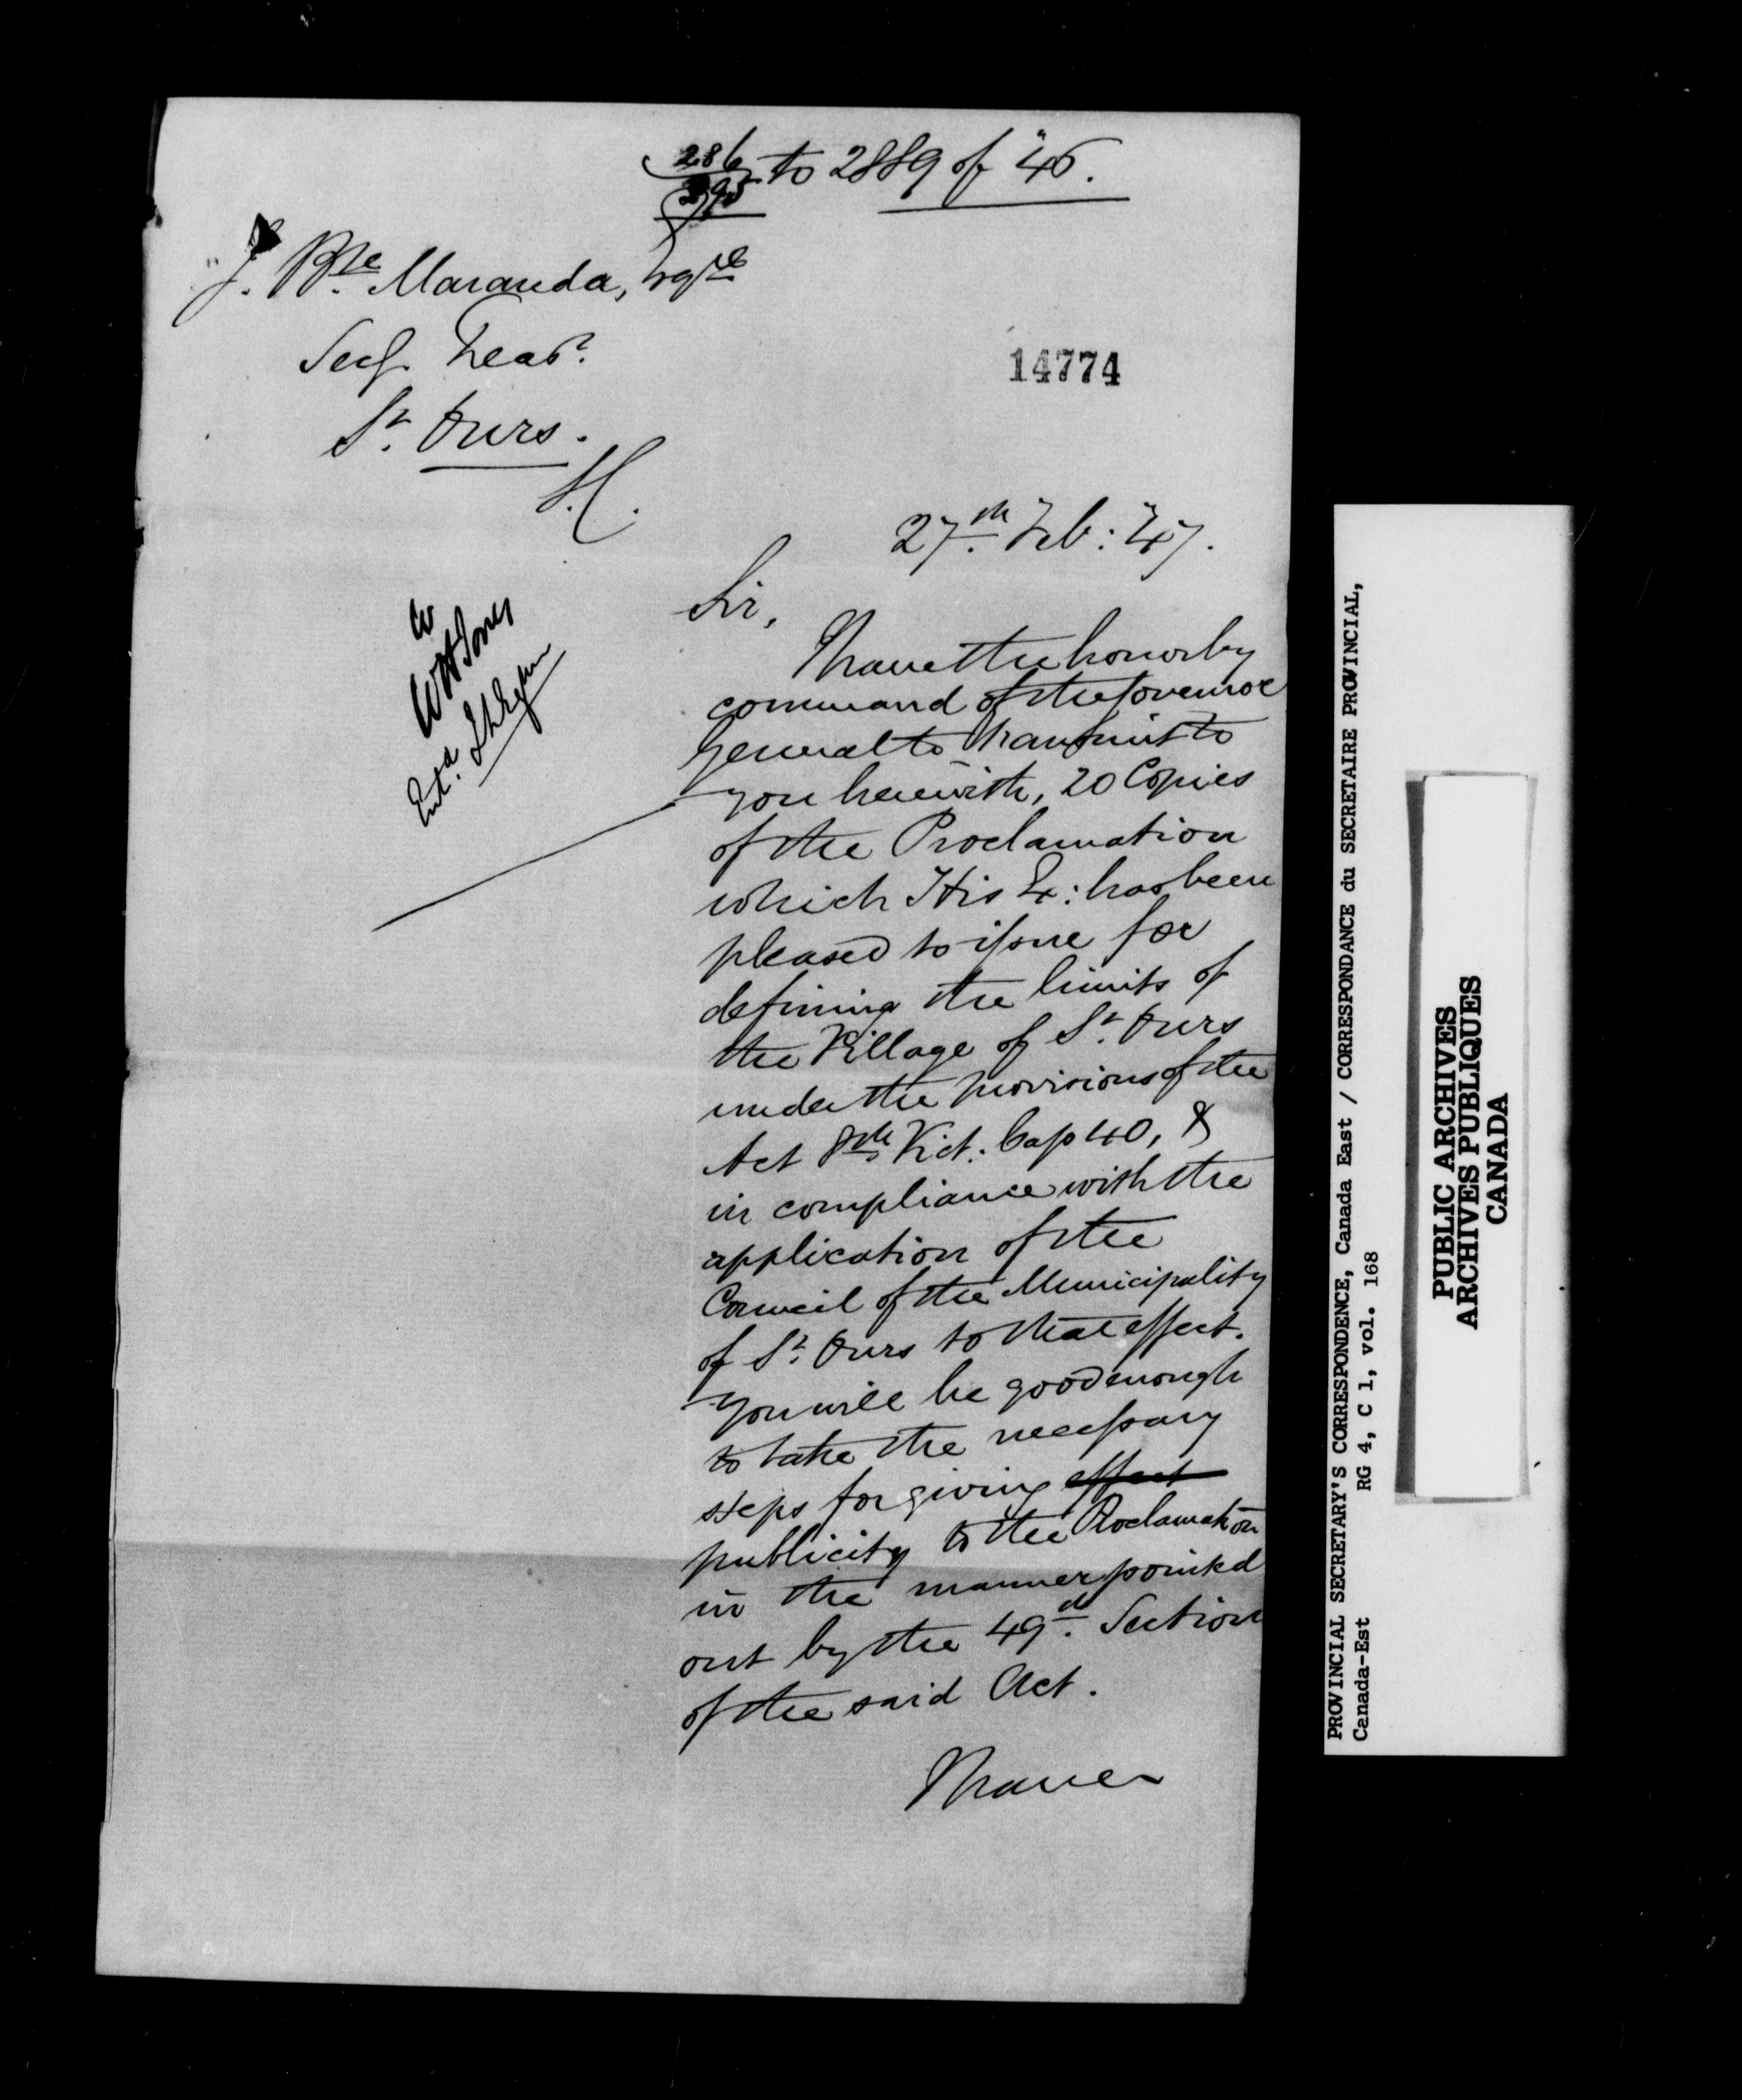 286 to 2889 of '46.
395
J. Bte Maranda, Esqre
Secy. Treasr.
St. Ours.
14774
27th Feb: '47.
W
WHJones
Entd.
Sir,
I have the honor by
command of the Governor
General to transmit to
you herewith, 20 Copies
of the Proclamation
which His Ex: has been
pleased to issue for
defining the limits of
the Village of St. Ours
under the provisions of the
Act 8th Vict: Cap 40, &
in compliance with the
application of the
Council of the Municipality
of St. Ours to that effect.
You will be good enough
to take the necessary
steps for giving effect
publicity to the Proclamation
in the manner pointed
out by the 49th. Section
of the said Act.
I have
PROVINCIAL SECRETARY'S CORRESPONDENCE, Canada East / CORRESPONDANCE du SECRETAIRE PROVINCIAL,
Canada-Est RG 4, C 1, vol. 168
PUBLIC ARCHIVES
ARCHIVES PUBLIQUES
CANADA